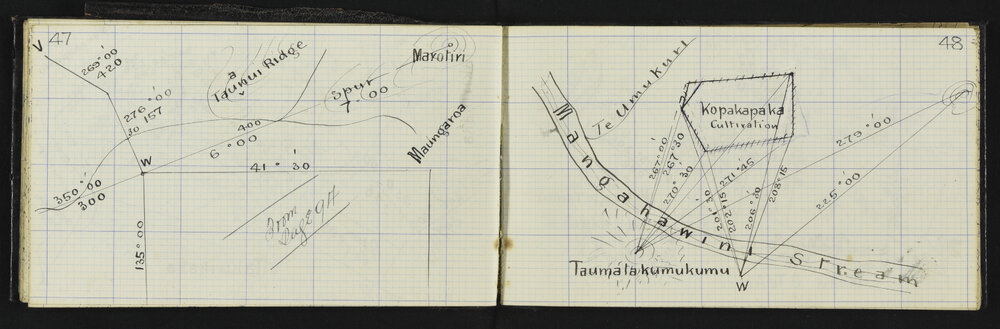 47
V
269° 00'
420
276° 00'
30 157
Taumui Ridge
a
Spur
7° 00
Marotiri
Maungaroa
400
6° 00
W
41° 30'
350° 00'
300
135° 00
From
Page 94
48
Te Umukuri
Kopakapaka
Cultivation
Mangahawini Stream
267° 00'
267° 30
270° 30'
271° 45
201° 30
202° 15
206° 30
208° 15
279° 00'
225° 00'
Taumatakumukumu
W